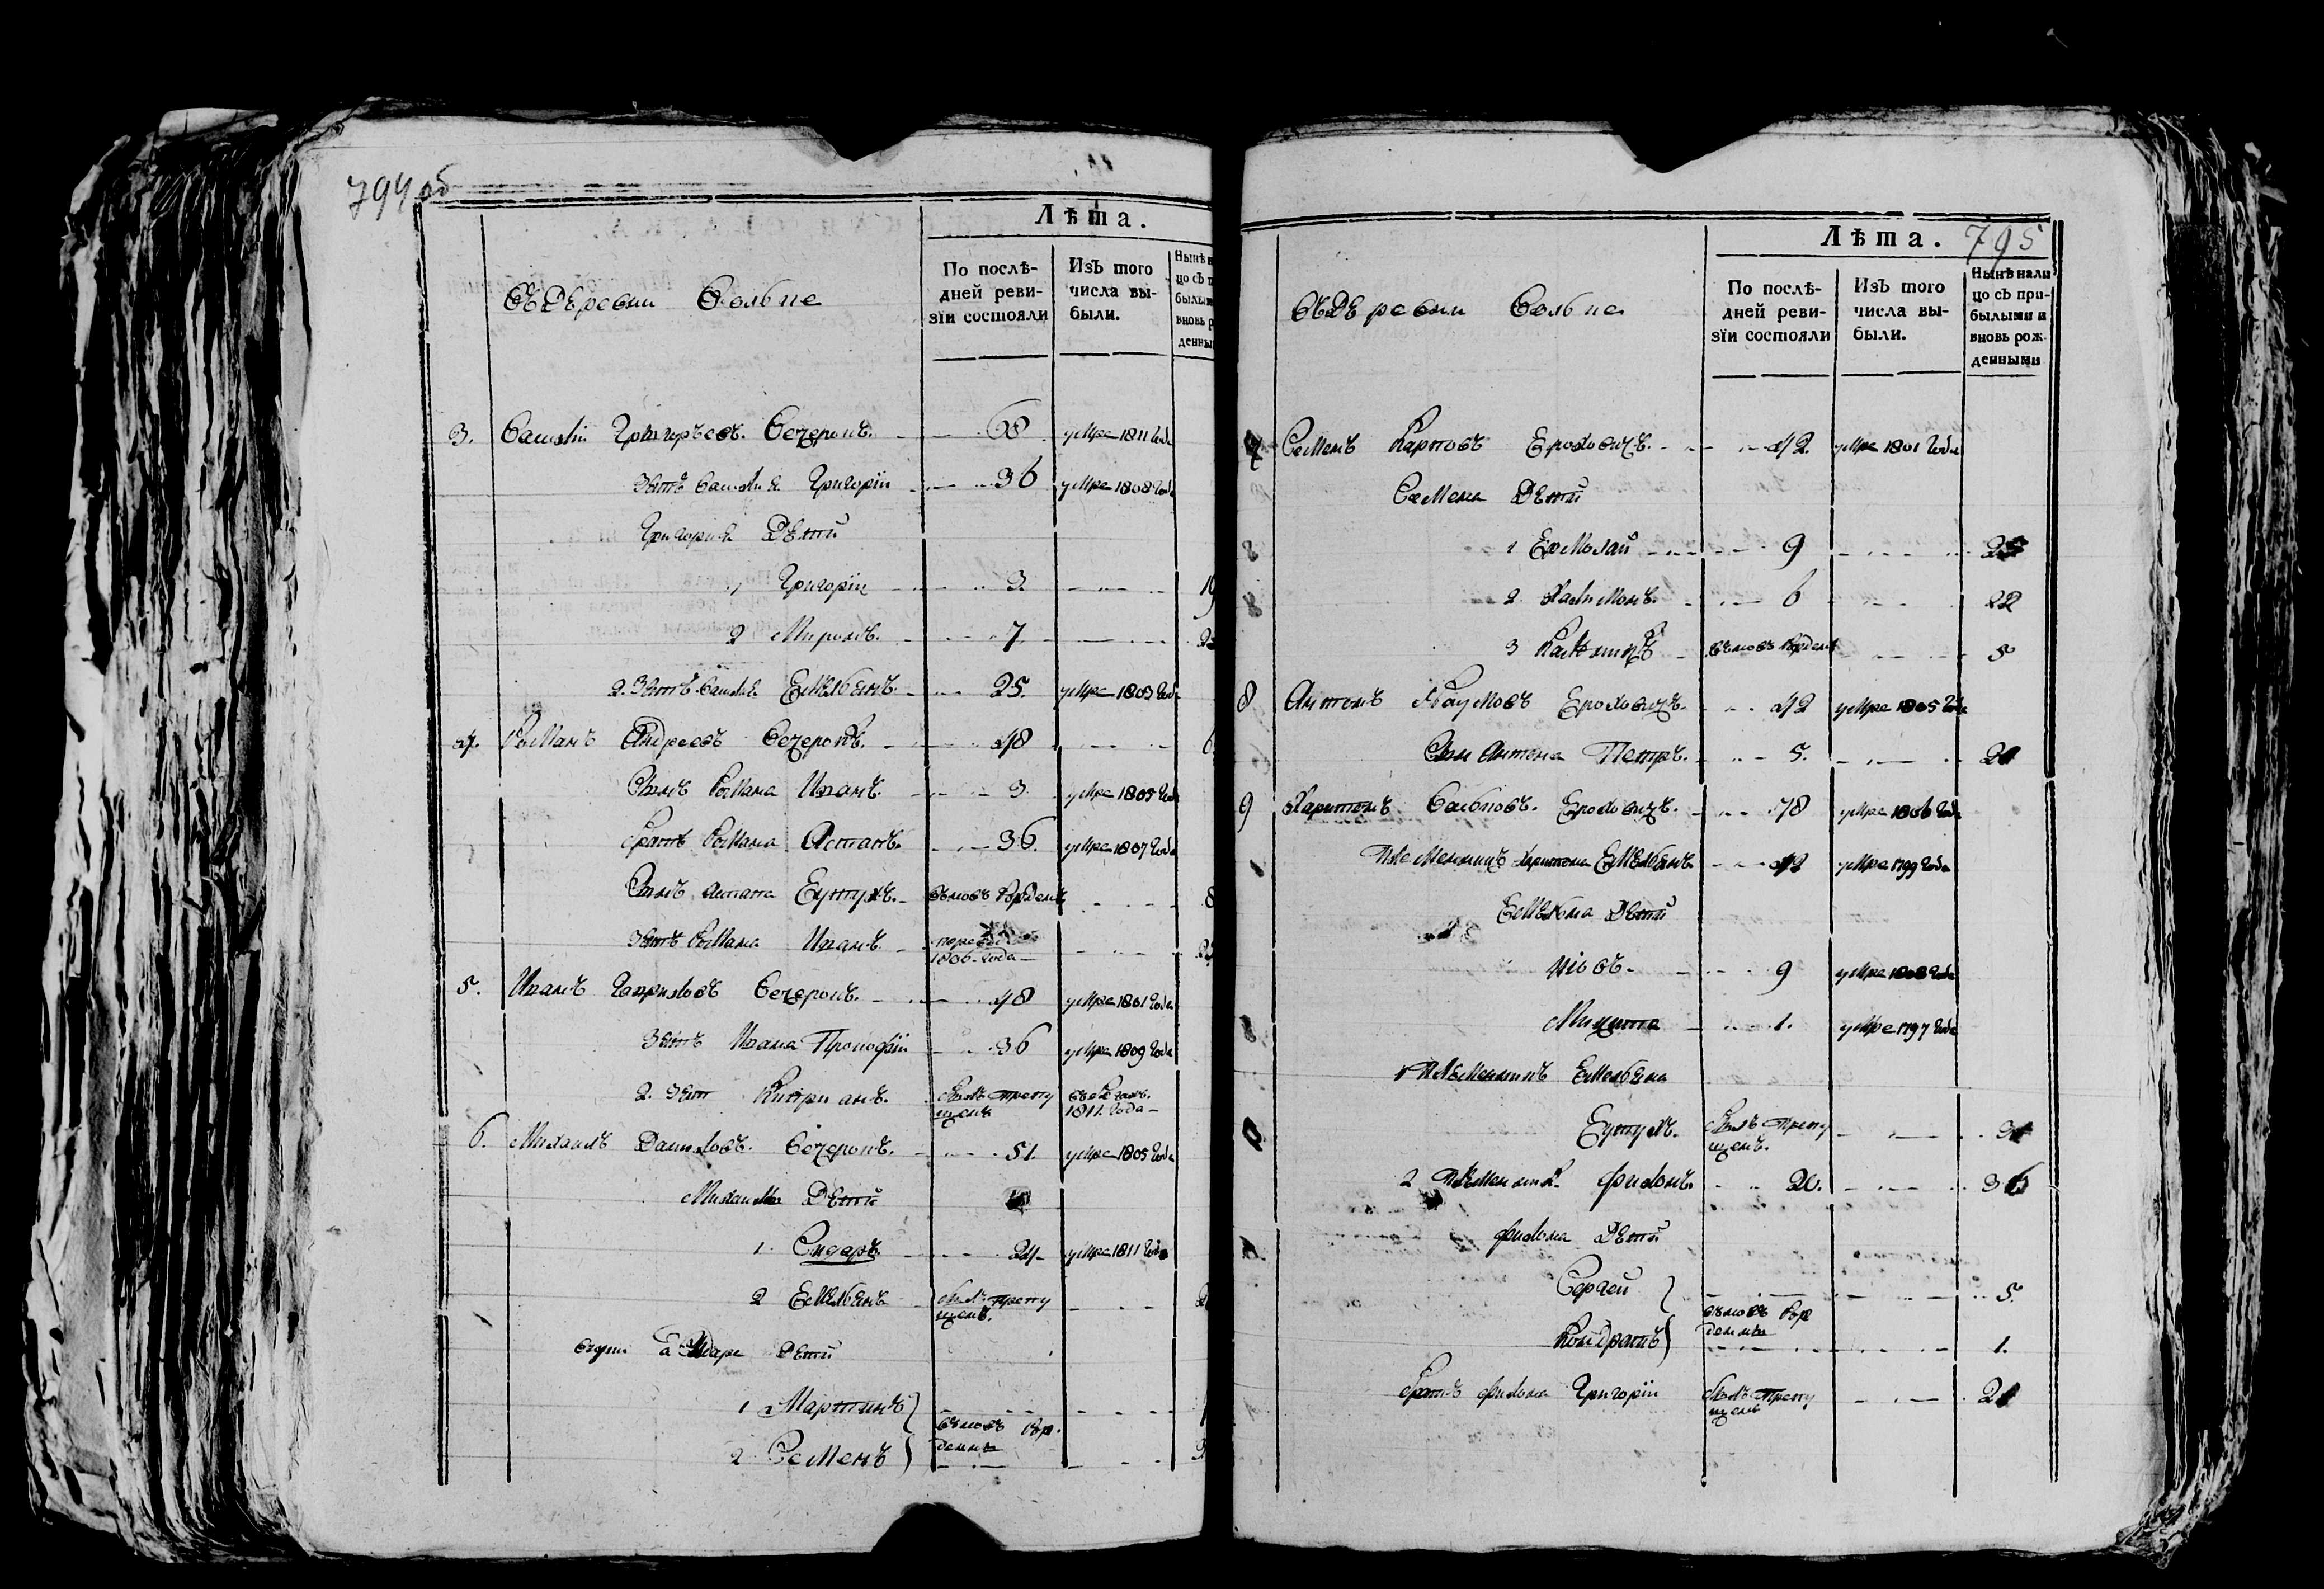 794 об
Лѣта.
По послѣ-
дней реви-
зїи состояли
Изъ того
числа вы-
были.
Нынѣ н
цо съ п
былым
вновь р
денным
Въ Деревни Вольпе
3. Василiй Григорьевъ Вечерокъ. 68 умре 1811 Года
Зять Василiя Григорiи 36 умре 1808 Года
Григорiя Дети
1 Григорiи 3. 19
2 Миронъ. 7.
2. Зять Василiя Емельянъ 25. умре 1805 Года
4. Романъ Андреевъ Вечерокъ. 48
Сынъ Романа Иванъ. 3. умре 1805 Года
Братъ Романа Астапъ. 36. умре 1807 Года
Сынъ Астапа Евтухъ. вновь Рожденъ 8
Зять Романа Иванъ
1806 Года
5. Иванъ Гавриловъ Вечерокъ. 48 умре 1801 Года
Зять Ивана Прокофiи 36 умре 1809 Года
2. Зять Киприанъ. Былъ пропу
щенъ
1811 Года
6. Михаилъ Даниловъ Вечерокъ. 51. умре 1805 Года
Михаила Дети
1. Сидоръ 24 умре 1811 Года
2 Емельянъ Былъ пропу
щенъ.
Дети
1 Мартинъ
вновь Рож
денны
2 Семенъ
795
Лѣта.
По послѣ-
дней реви-
зїи состояли
Изъ того
числа вы-
были.
Нынѣ нали
цо съ при-
былыми и
вновь рож-
денными
Въ Деревни Вольпе
7 Семенъ Карповъ Ероховецъ. 42. умре 1801 Года
Семена Дети
1 Ермолай 9
2 Халимонъ. 6 22
3 вновь Рожденъ 5
8 Антонъ Наумовъ Ероховецъ. 42 умре 1805 Года
Сынъ Антона Петръ. 5. 21
9 Харитонъ Ероховецъ. 78 умре 1806 Года
Племянникъ Харитона Емельянъ 42 умре 1799 Года
Емельяна Дети
Иiовъ. 9 умре 1808 Года
Микита 1. умре 1797 Года
1 Племянникъ Емельяна
Евтухъ. Былъ Пропу
щенъ.
2 Племянникъ Филонъ. 20. 36
Филона Дети
Сергей 5.
вновь Рож
денны
Кондратъ 1.
Братъ Филона Григорiи Былъ Пропу
щенъ 21